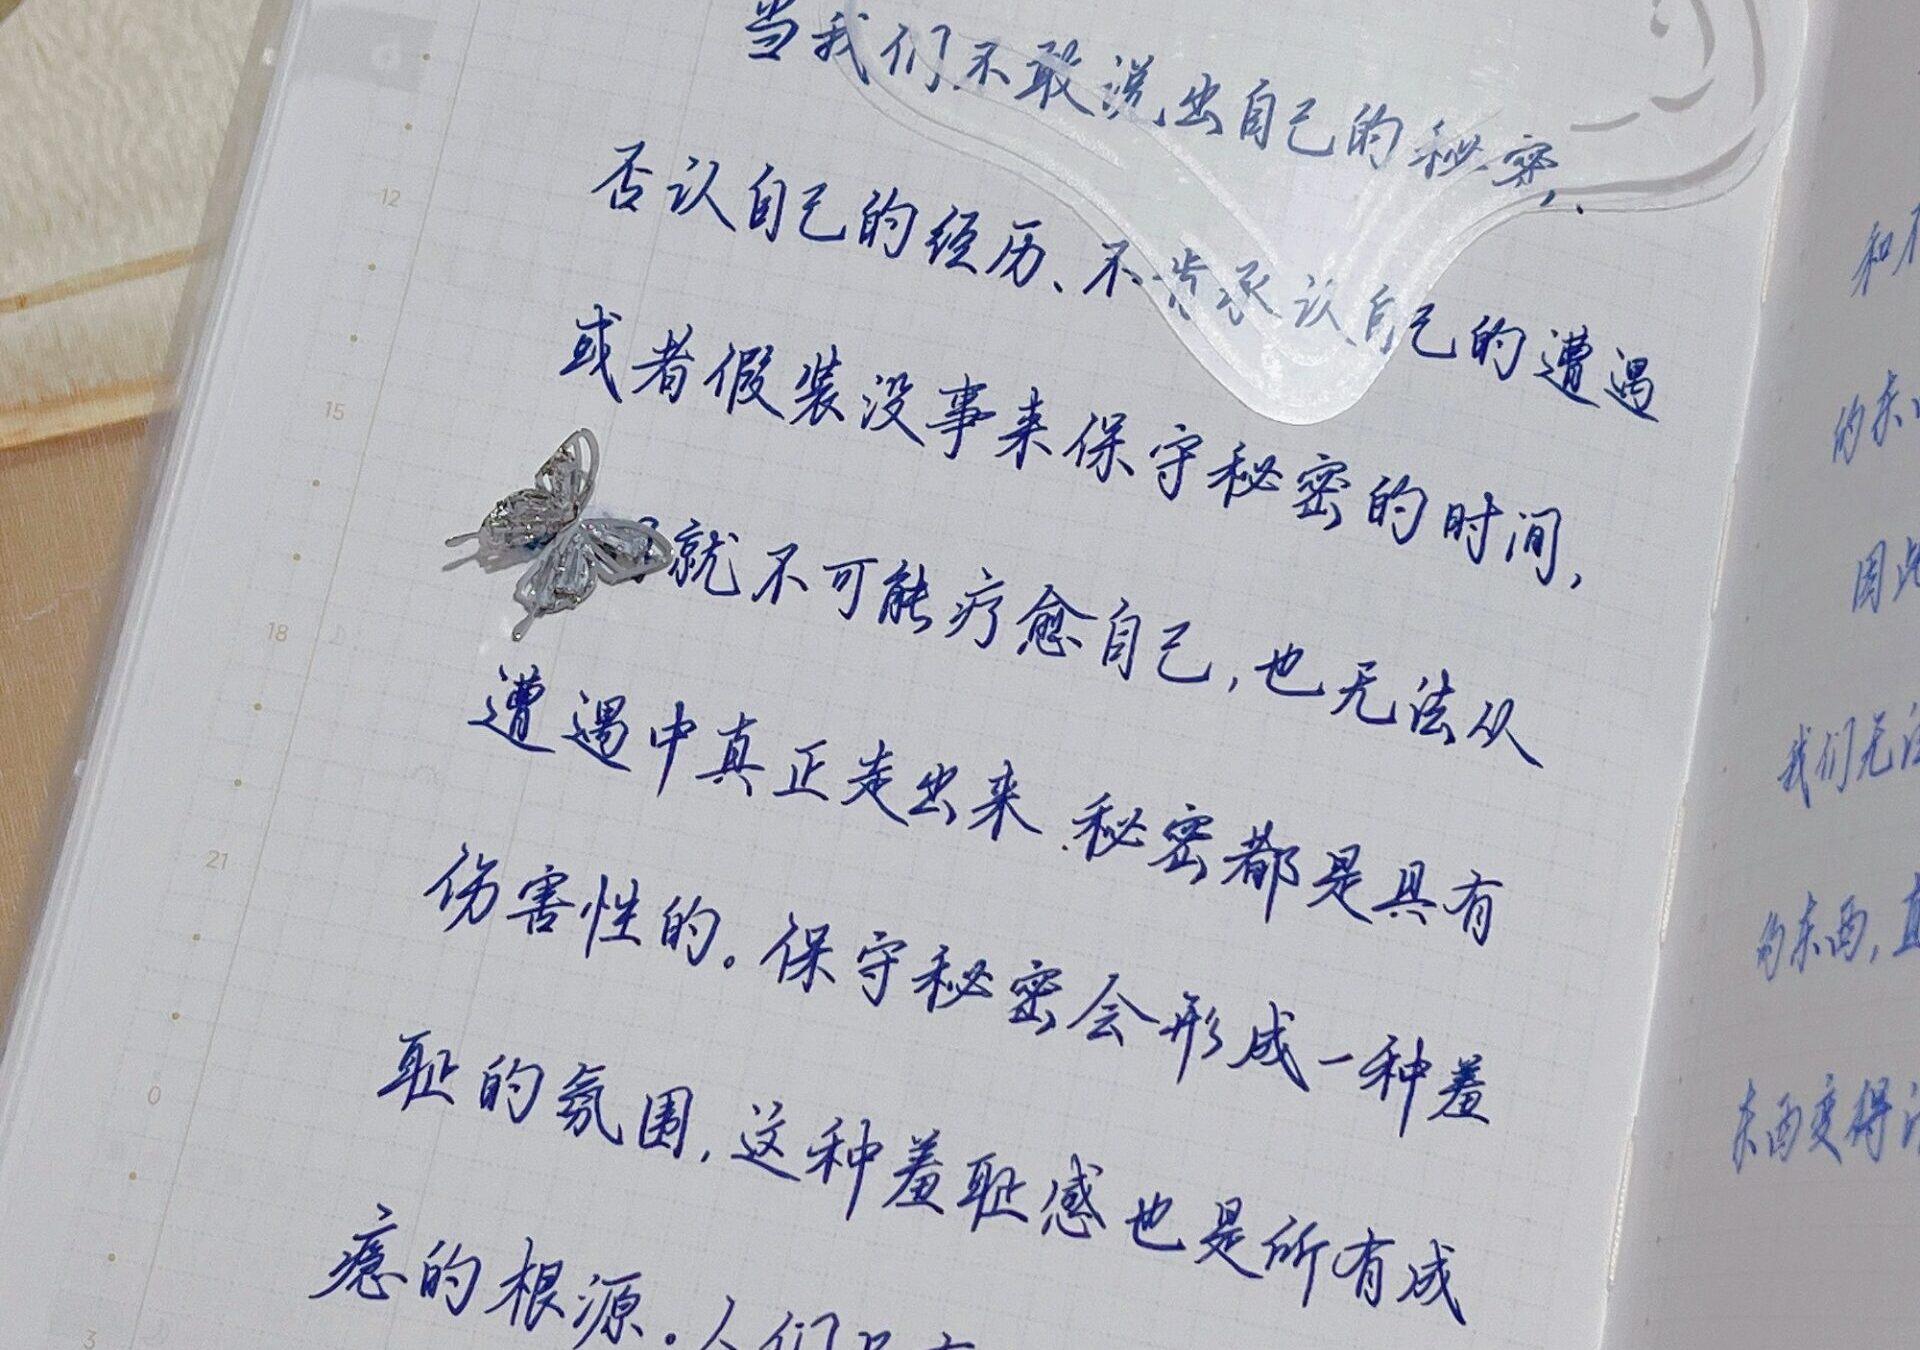 当我们不敢说出自己的秘密,
否认自己的经历、不肯承认自己的遭遇
或者假装没事来保守秘密的时间,
就不可能疗愈自己,也无法从
遭遇中真正走出来.秘密都是具有
伤害性的。保守秘密会形成一种羞
耻的氛围,这种羞耻感也是所有成
瘾的根源。人们只有
12
15
18
21
0
3
和
的东
因此
我们无法
的东西,直
东西变得